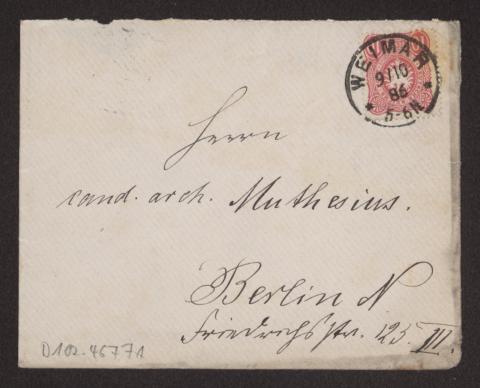 WEIMAR
9/10
86
* 5-6N *
Herrn
cand. arch. Muthesius.
Berlin N
Friedrichsstr. 125. III.
D102-46771